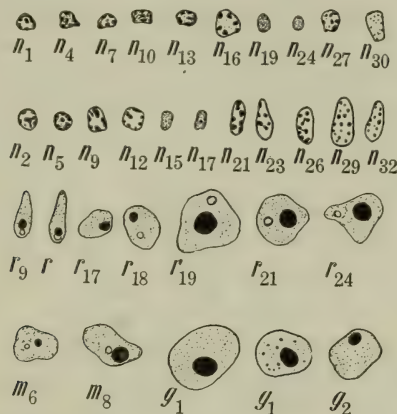 n1 n4 n7 n10 n13 n16 n19 n24 n27 n30
n2 n5 n9 n12 n15 n17 n21 n23 n26 n29 n32
r9 r r17 r18 r19 r21 r24
m6 m8 g1 g1 g2